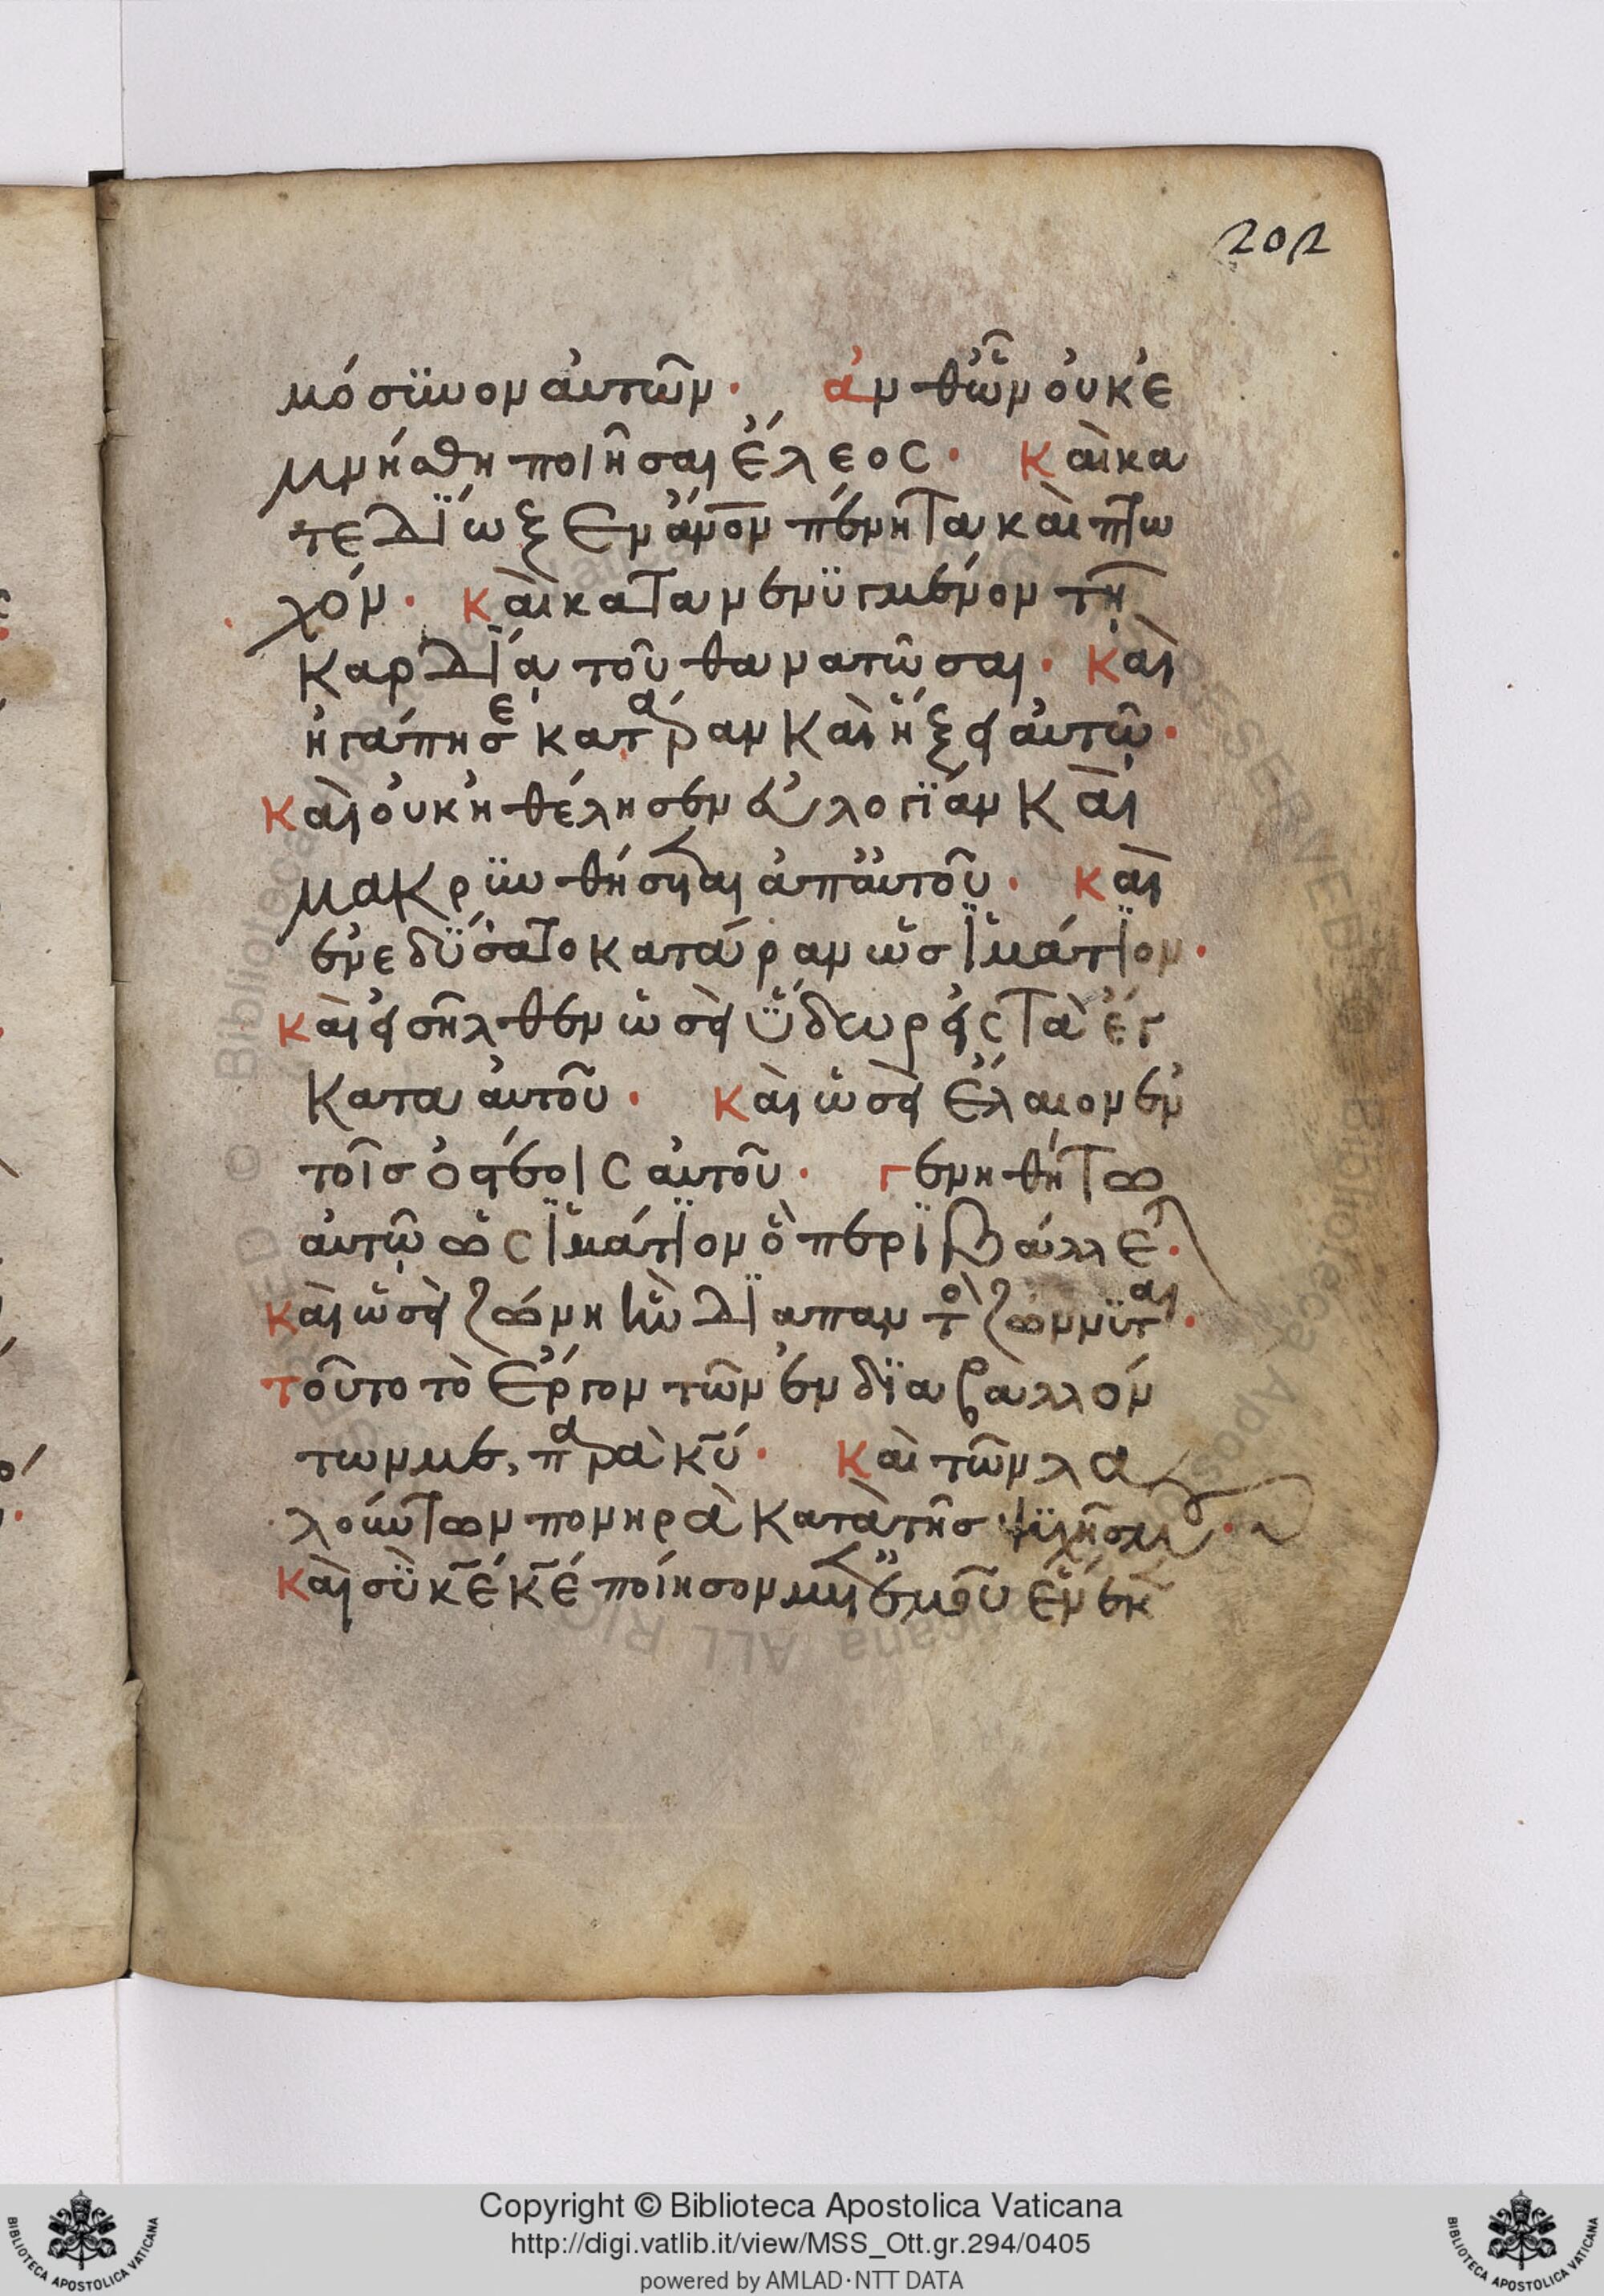 202
μόσϋνον ἀυτῶν· ἀνθῶ̓ν ὀυκ ἐ
μνήσθη ποιῆσαι ἔλεος· Κὰι κα
τεδΐωξεν ἄνο̅ν πένητα κὰι πτω
χόν· Κὰι κατανενϋγμένον τῆ
Καρδΐᾳ τοῦ θανατῶσαι· Κὰι
ἠγάπησε κατάραν Κὰι ἥξει ἀυτῷ·
Κὰι ὀυκ ἠθέλησεν ἐυλογΐαν Κὰι
μακρϋνθήσεται ἀπ ἀυτοῦ· Κὰι
ἐνεδΰσατο κατάραν ὡσ ϊμάτϊον·
Κὰι εἰσῆλθεν ὡσεὶ ϋ̔́δωρ εἰς τὰ ἔγ
Κατα ἀυτοῦ· Κὰι ὡσεὶ ἔλαιον ἐν
τοῖσ ὀστέοις ἀυτοῦ· Γενηθήτω
ἀυτῷ ὡς ϊμάτϊον ὃ περϊβάλλε·
Κὰι ὡσεὶ ζώνη ἣν δϊαπαντὸ ζώννϋται·
Τοῦτο τὸ ἔργον τῶν ἐνδϊαβαλλόν
των με, παρὰ κ̅υ̅· Κὰι τῶν λα
λούντων πονηρὰ Κατὰ τῆσ ψϋχῆσ μου·
Κὰι σϋ κ̅ε̅ κ̅ε̅ ποίησον μετ ἐμοῦ ἕνεκ
Copyright © Biblioteca Apostolica Vaticana
http://digi.vatlib.it/view/MSS_Ott.gr.294/0405
powered by AMLAD·NTT DATA
BIBLIOTECA APOSTOLICA VATICANA
BIBLIOTECA APOSTOLICA VATICANA